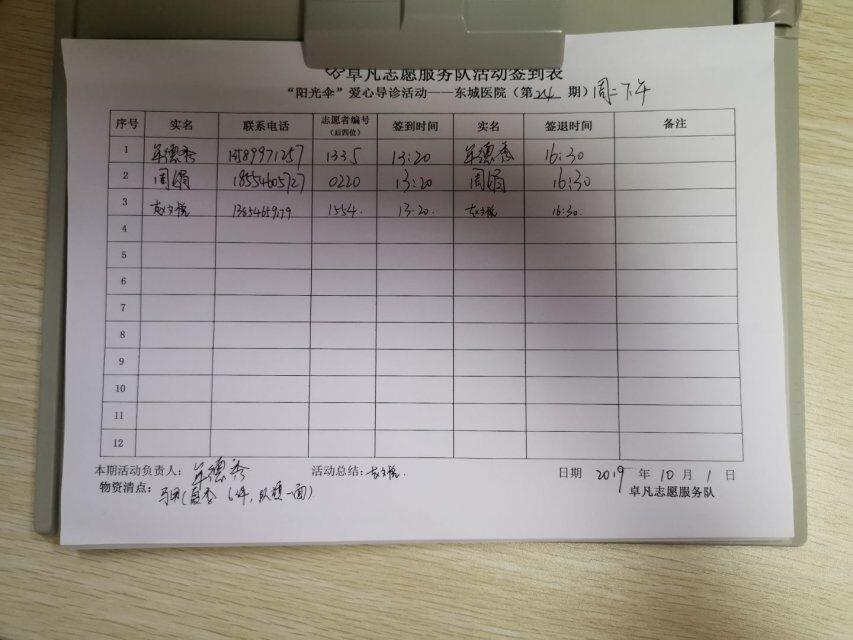 卓凡志愿服务队活动签到表
“阳光伞”爱心导诊活动——东城医院（第24期）周二下午
序号 实名 联系电话 志愿者编号（后四位） 签到时间 实名 签退时间 备注
1 牟德秀 13589971257 1335 13:20 牟德秀 16:30
2 周娟 18554605727 0220 13:20 周娟 16:30
3 赵文悦 1554. 13:20. 赵文悦 16:30.
4
5
6
7
8
9
10
11
12
本期活动负责人：牟德秀 活动总结：赵文悦. 日期 2019 年 10 月 1 日
物资清点：马甲(夏季 6件，队旗一面) 卓凡志愿服务队